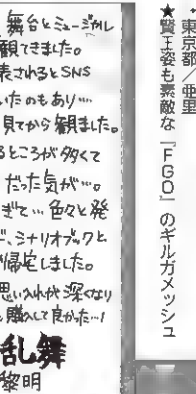 東京都/亜里
★賢王姿も素敵な『FGO』のギルガメッシュ
舞台とミュージカル
観てきました。
表されるとSNS
いたのもあり…
見てから観ました。
るところが多くて
だった気が…。
ぎて…色々と発
ど、シナリオブックと
帰宅しました。
思い入れが深くなり
購入して良かった…!
乱舞
黎明